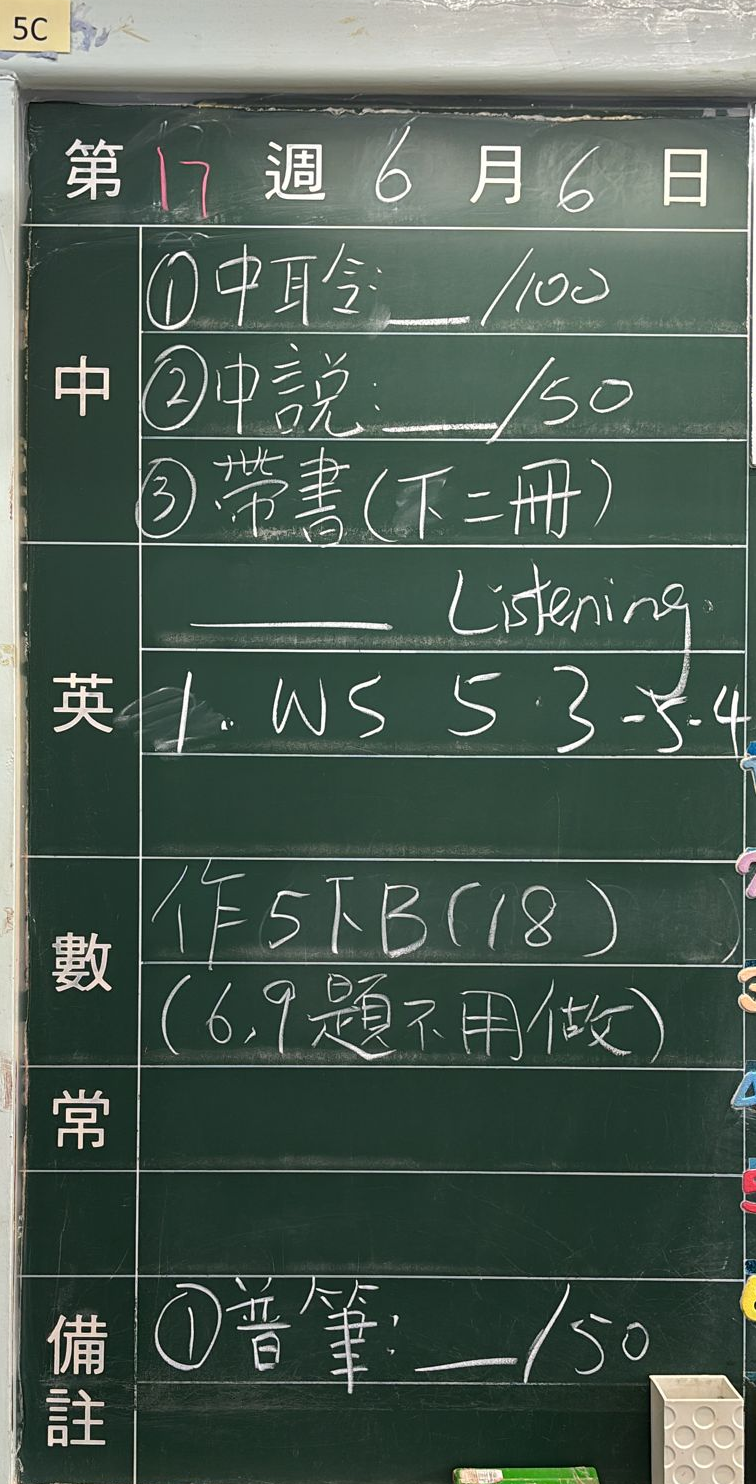 5C
第 17 週 6 月 6 日
中
①中聆:__/100
②中説:__/50
③帶書(下二冊)
英
____ Listening
1. WS 5.3-5.4
數
作5下B(18)
(6,9題不用做)
常
備註
①普筆:__/50